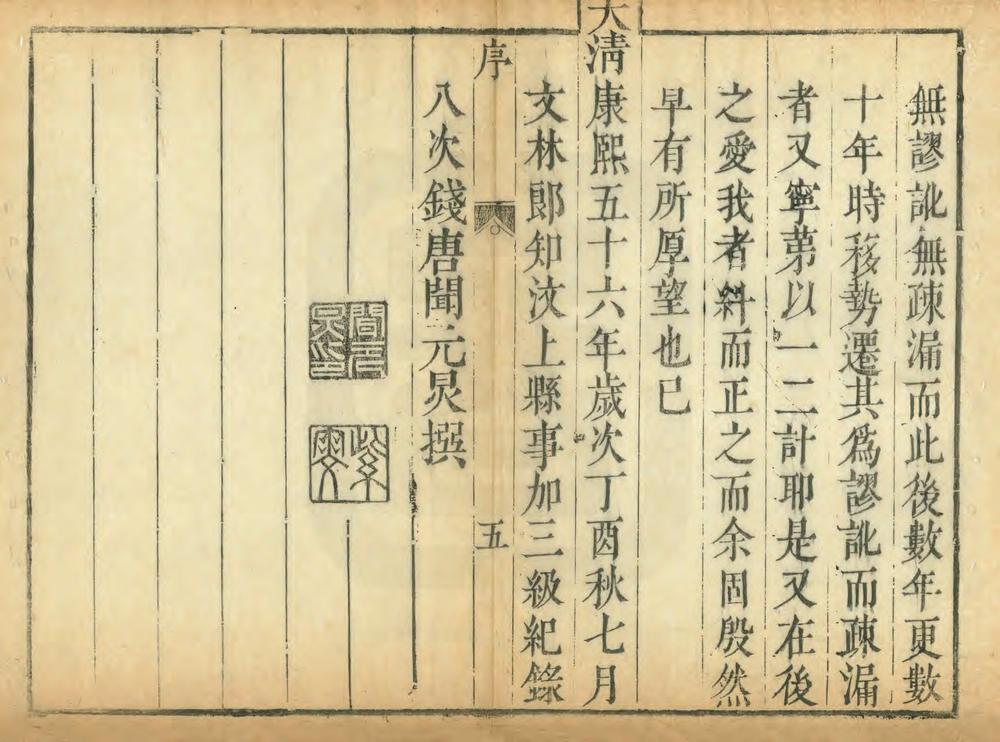 無謬訛無疎漏而此後數年更數
十年時移勢遷其爲謬訛而疎漏
者又寧苐以一二計耶是又在後
之愛我者糾而正之而余固殷然
早有所厚望也已
大清康熙五十六年歲次丁酉秋七月
文林郎知汶上縣事加三級紀錄
序 五
八次錢唐聞元炅撰
聞元炅印
紫雯